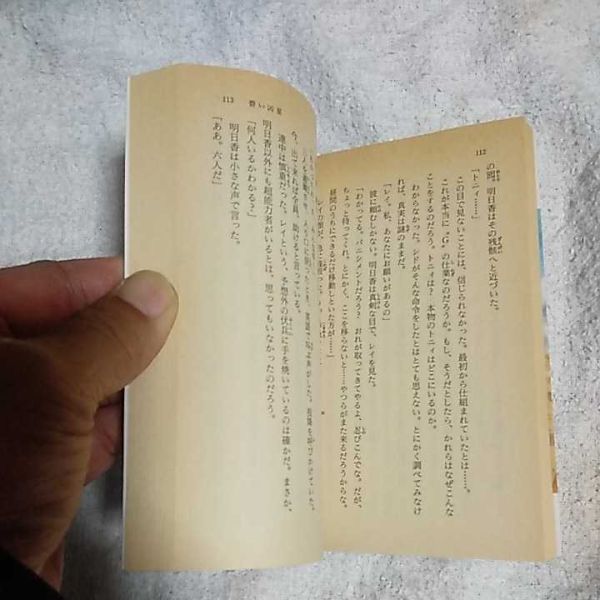 112
の間、明日香はその残骸へと近づいた。
「トニィ……」
この目で見ないことには、信じられなかった。最初から仕組まれていたとは……。
これが本当に"G"の仕業なのだろうか。もし、そうだとしたら、かれらはなぜこんな
ことをするのだろう。トニィは？ 本物のトニィはどこにいるのか。
わからなかった。シドがそんな命令をしたとはとても思えない。とにかく調べてみなけ
れば、真実は謎のままだ。
「レイ。私、あなたにお願いがあるの」
彼に頼むしかない。明日香は真剣な目で、レイを見た。
「わかってる。パニシメントだろう？ おれが取ってきてやるよ、忍びこんでな。だが、
ちょっと待ってくれ。とにかく、ここを移らないと……やつらがまた来るだろうからな。
昼間のうちにできるだけ移動しといた方が……」
113 蒼い凶星
今、出て来れば全員、助けると言っている。
連中は慎重だった。レイという、予想外の伏兵に手を焼いているのは確かだ。まさか、
明日香以外にも超能力者がいるとは、思ってもいなかったのだろう。
「何人いるかわかる？」
明日香は小さな声で言った。
「ああ。六人だ」